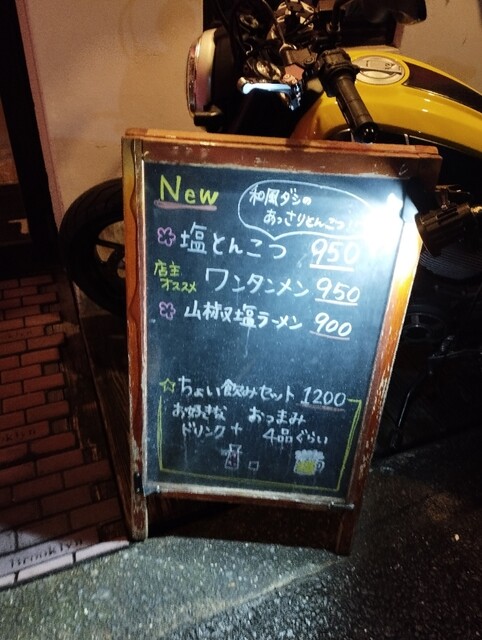 New
和風ダシの
あっさりとんこつ
塩とんこつ 950
店主
オススメ
ワンタンメン 950
山椒塩ラーメン 900
☆ちょい飲みセット 1200
お好きな
ドリンク
+
おつまみ
4品ぐらい
Brooklyn